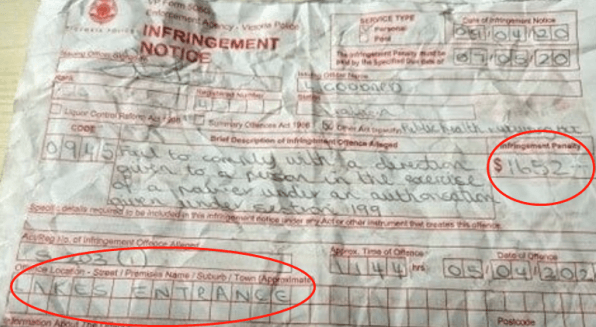 VP Form 508
Enforcement Agency - Victoria Police
VICTORIA POLICE
INFRINGEMENT
NOTICE
SERVICE TYPE
Personal
Post
Date of Infringement Notice
05 04 20
The infringement Penalty must be
paid by the Specified Due date of
07 05 20
Issuing Officer Name
GODDARD
Rank
Registered Number
Liquor Control Reform Act 1998
Summary Offences Act 1966
Other Act (specify) Public health
CODE
Brief Description of Infringement Offence Alleged
Infringement Penalty
0945 Fail to comply with a direction
$ 1652
given to a person in the exercise
of a power under an authorisation
given under section 199
Specific details required to be included in this infringement notice under any Act or other instrument that creates this offence.
Act/Reg No. of Infringement Offence Alleged
S 203 (1)
Approx. Time of Offence
1144 hrs
Date of Offence
05 04 202
Offence Location - Street / Premises Name / Suburb / Town (Approximate
LAKES ENTRANCE
Information About The
Postcode